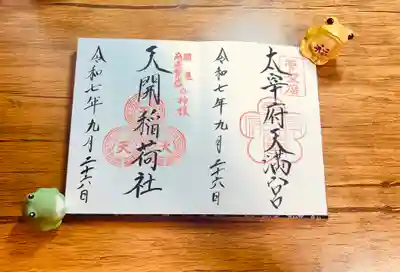 太宰府天満宮
令和七年九月二十六日
開運
の神様
天開稲荷社
令和七年九月二十六日